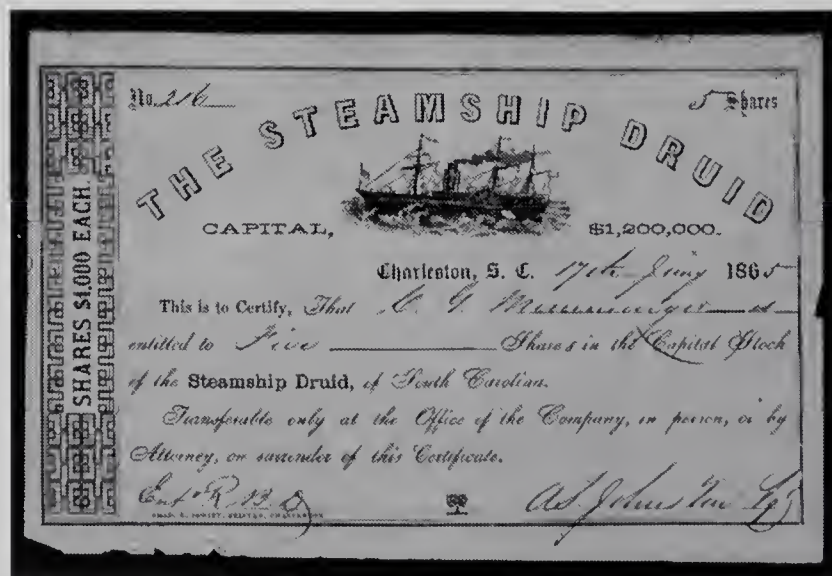 No. 216 5 Shares
THE STEAMSHIP DRUID
CAPITAL, $1,200,000.
SHARES $1,000 EACH.
Charleston, S. C. 17th 1865
This is to Certify, That C. G. Memminger is
entitled to Five Shares in the Capital Stock
of the Steamship Druid, of South Carolina.
Transferable only at the Office of the Company, in person, or by
Attorney, on surrender of this Certificate.
A.S. Johnston